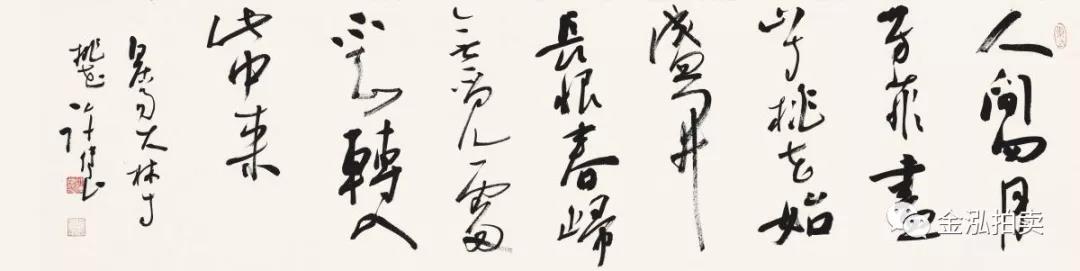 人間四月
芳菲盡
山寺桃花始
盛开
長恨春歸
無覓處
不知轉入
此中來
居易大林寺
桃花
許
金泓拍卖